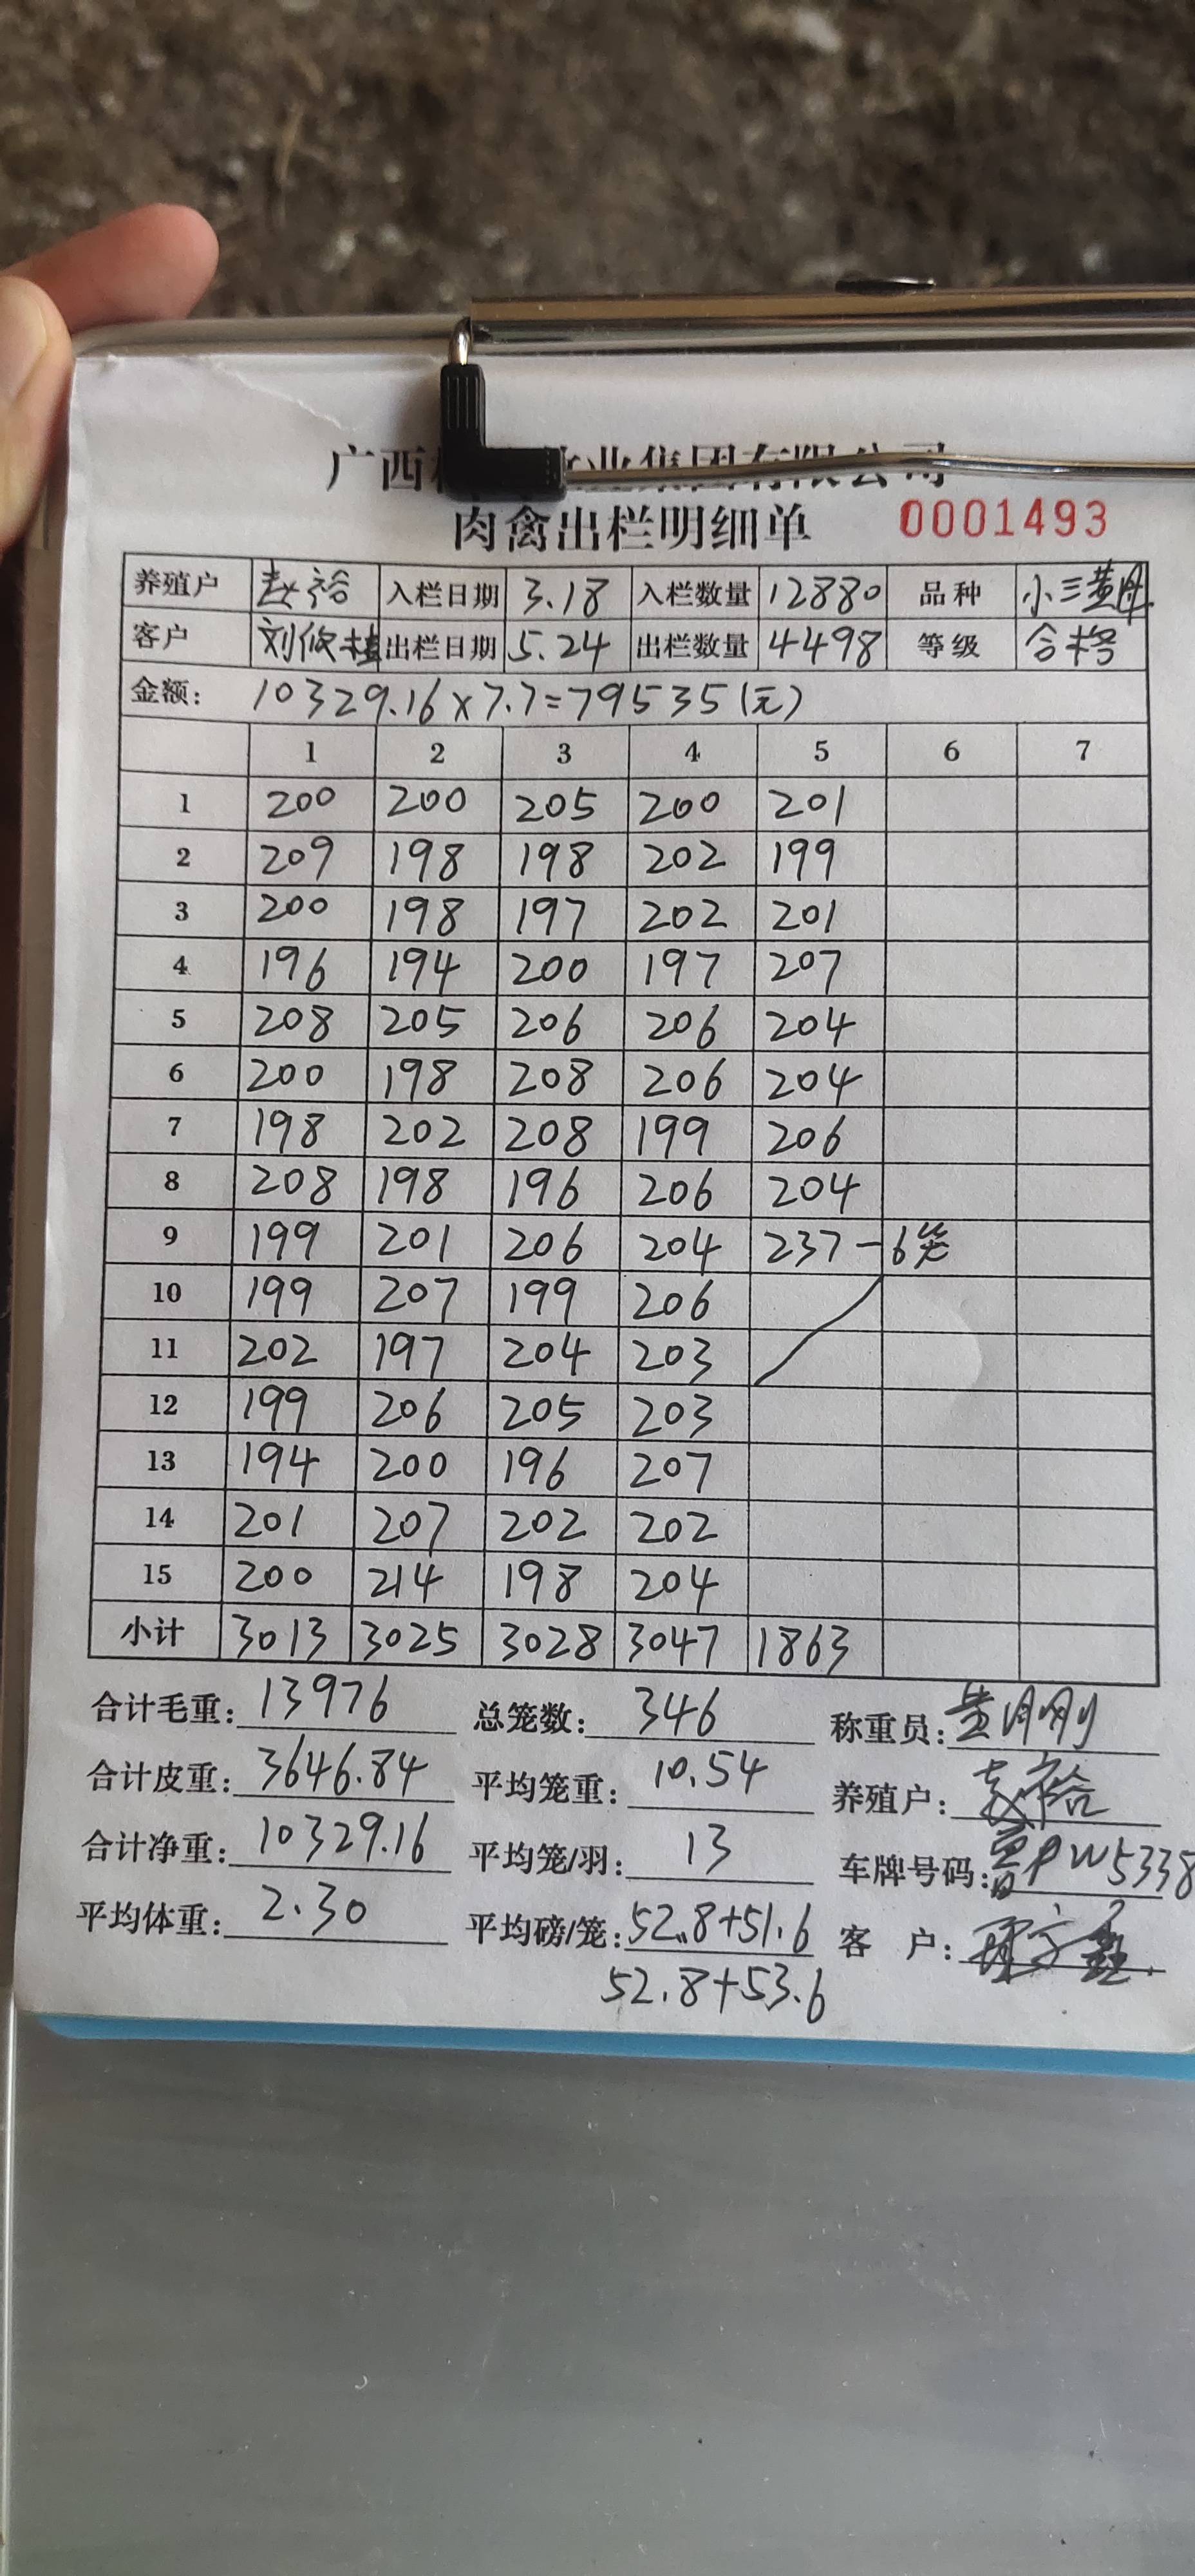 广西 牧业集团有限公司
肉禽出栏明细单 0001493
养殖户 赵裕 入栏日期 3.18 入栏数量 12880 品种 小三黄
客户 刘俊 出栏日期 5.24 出栏数量 4498 等级 合格
金额: 10329.16×7.7=79535(元)
1 2 3 4 5 6 7
1 200 200 205 200 201
2 209 198 198 202 199
3 200 198 197 202 201
4 196 194 200 197 207
5 208 205 206 206 204
6 200 198 208 206 204
7 198 202 208 199 206
8 208 198 196 206 204
9 199 201 206 204 237-6笼
10 199 207 199 206
11 202 197 204 203
12 199 206 205 203
13 194 200 196 207
14 201 207 202 202
15 200 214 198 204
小计 3013 3025 3028 3047 1863
合计毛重: 13976 总笼数: 346 称重员: 黄月刚
合计皮重: 3646.84 平均笼重: 10.54 养殖户: 赵裕
合计净重: 10329.16 平均笼/羽: 13 车牌号码: 鲁PW5338
平均体重: 2.30 平均磅/笼: 52.8+51.6 客 户:
52.8+53.6